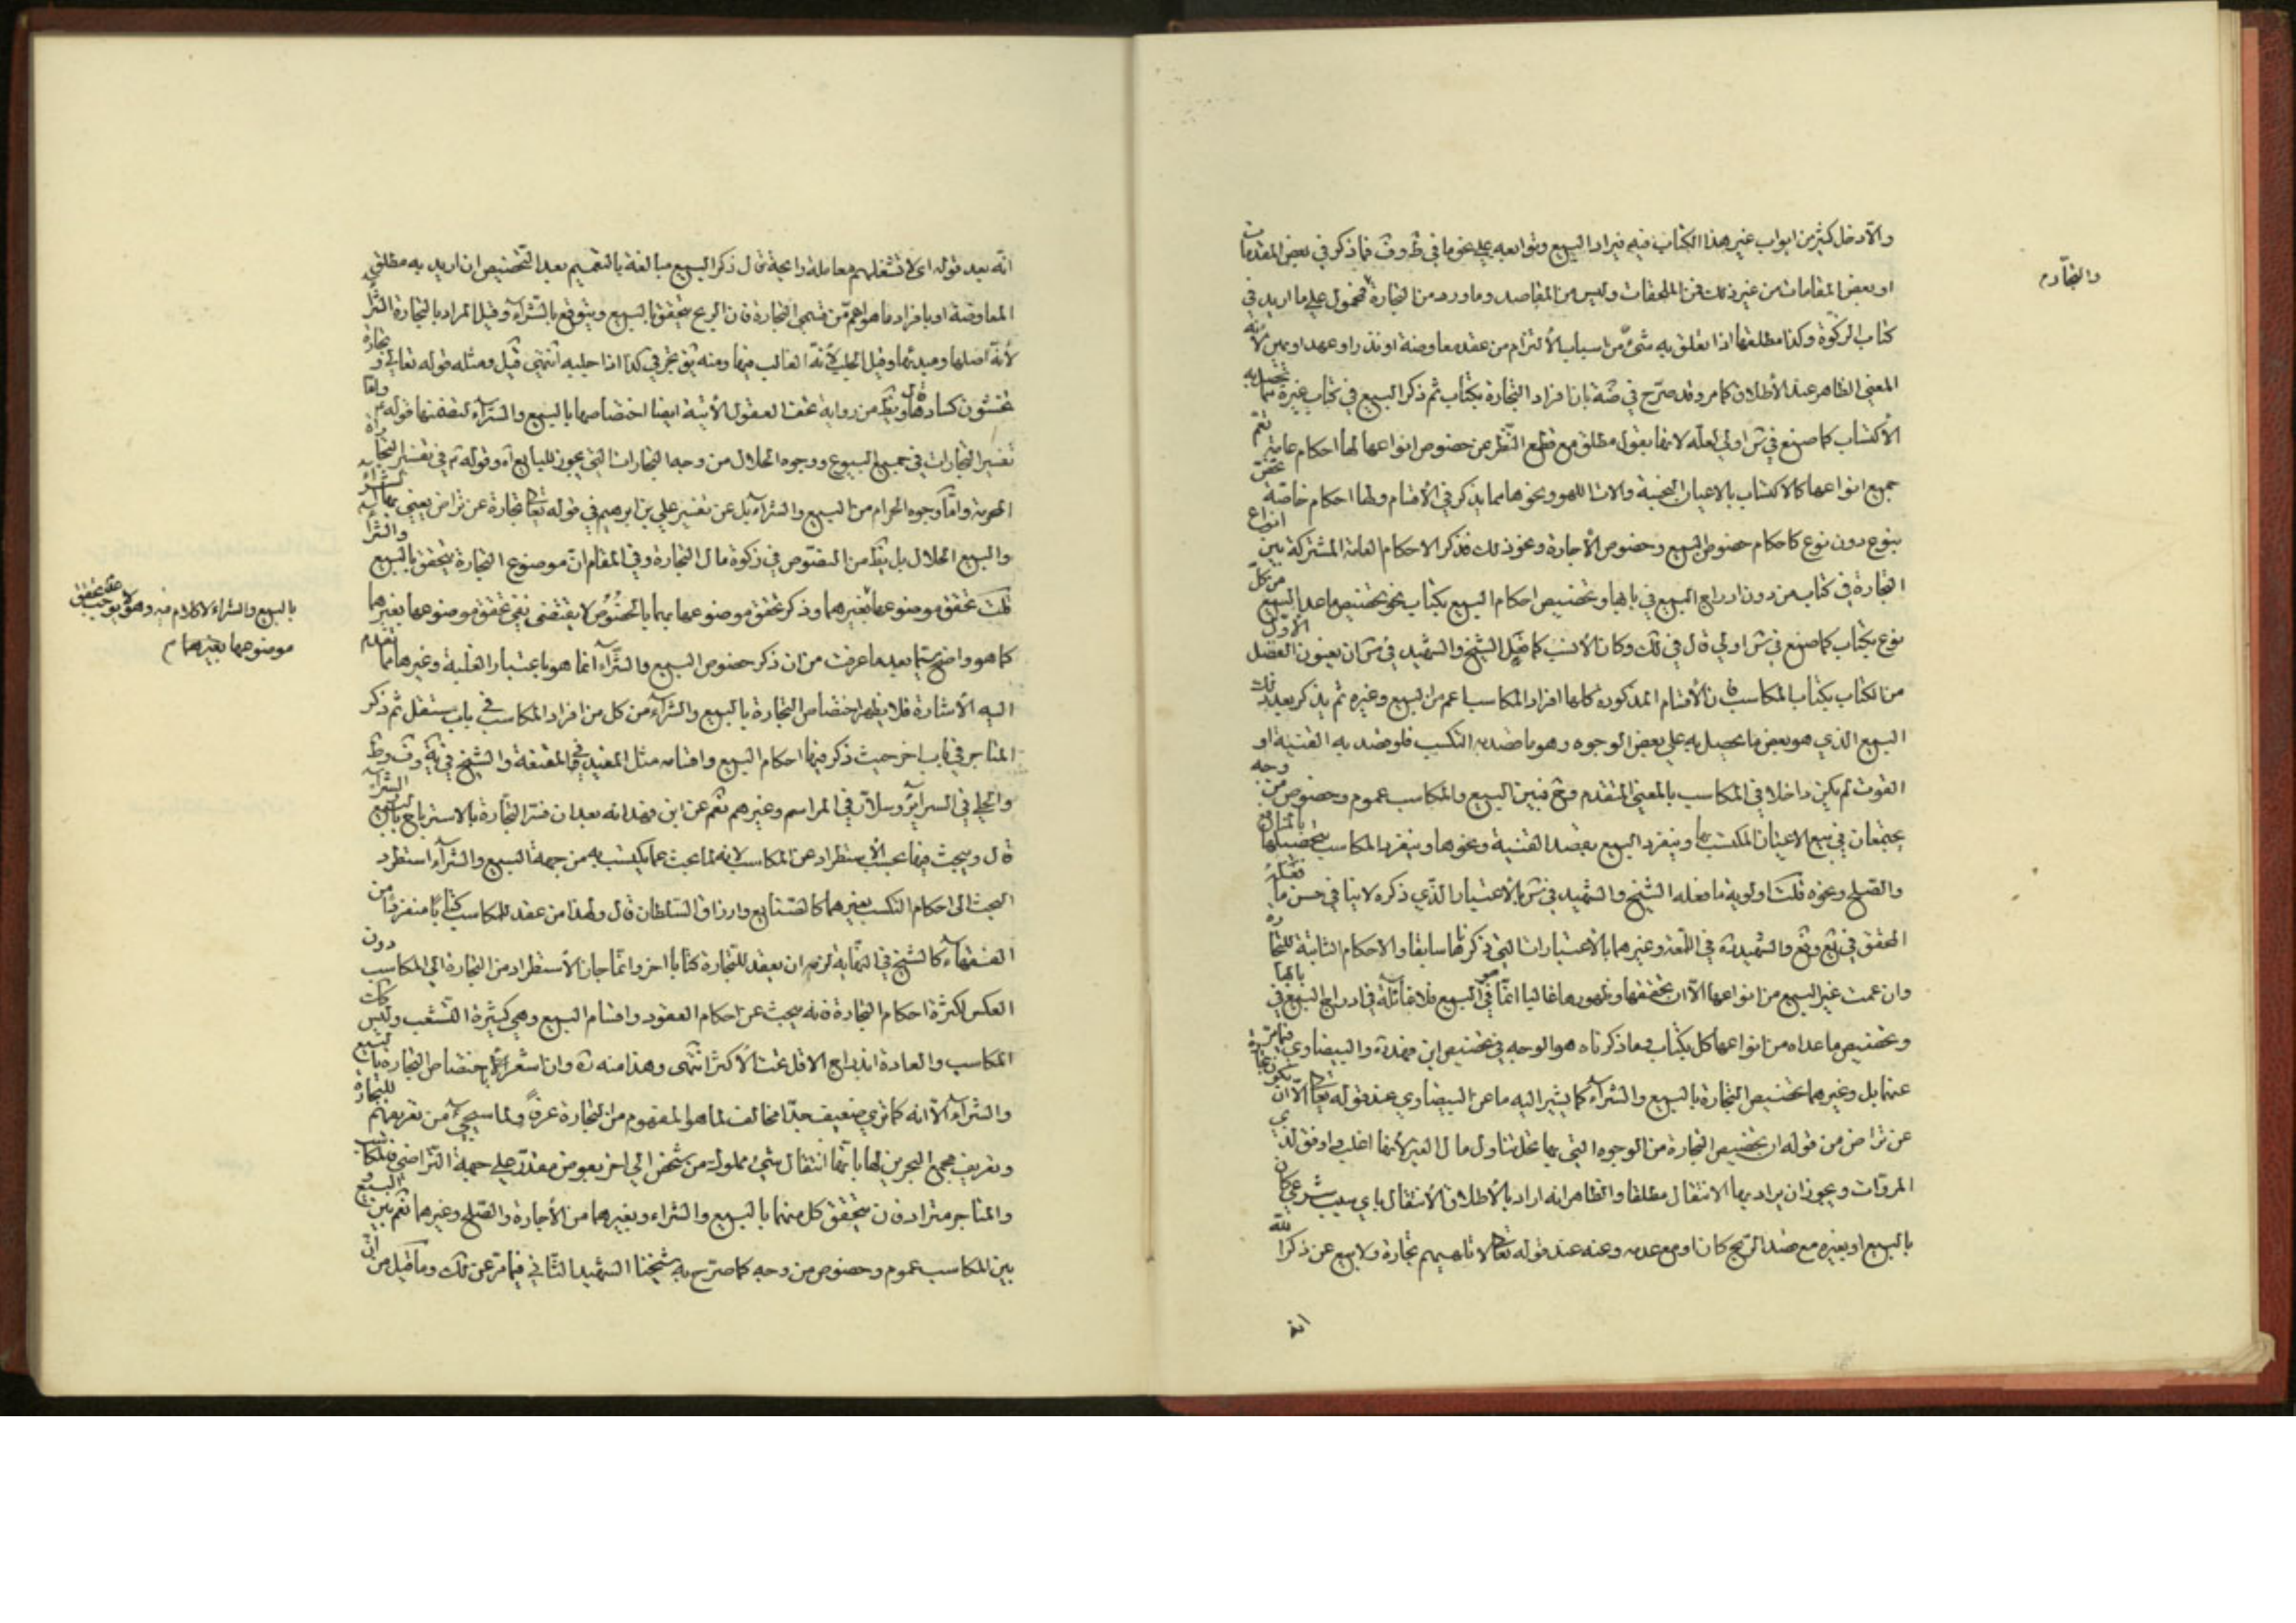 والا دخل كثير من ابواب غير هذا الكتاب فيه فيراد البيع وتوابعه على نحو ما في ظ وف فما ذكر في بعض المقدمات
او بعض المقامات من غير ذلك فمن الملحقات وليس من المقاصد وما ورد من التجارة فمحمول على ما اريد في
والتجارة م
كتاب الزكوة وكذا مطلقها اذا تعلق به شئ من اسباب الالتزام من عقد معاوضة او نذر او عهد او يمين لانه
المعنى الظاهر عند الاطلاق كما مر وقد صرح في بان افراد التجارة بكتاب ثم ذكر البيع في كتاب غيره مما تحصل به
الاكتساب كما صنع في ش اولى لعله لانها بقول مطلق مع قطع النظر عن خصوص انواعها لها احكام عامة تعم
جميع انواعها كالاكتساب بالاعيان النجسة والات اللهو ونحوها مما يذكر في الاقسام ولها احكام خاصة تختص
بنوع دون نوع كاحكام خصوص البيع وخصوص الاجارة ونحو ذلك فذكر الاحكام العامة المشتركة بين انواع
التجارة في كتاب من دون ادراج البيع في بابها وتخصيص احكام البيع بكتاب نحو تخصيص ما عدا البيع من كل
نوع بكتاب كما صنع في ش اولى قال في لك وكان الانسب كما فعل الشيخ والشهيد في س ان يعنون الفصل الاول
من الكتاب بكتاب المكاسب فان الاقسام المذكورة كلها افراد المكاسب اعم من البيع وغيره ثم يذكر بعد ذلك
البيع الذي هو بعض ما يحصل به على بعض الوجوه وهو ما قصد به التكسب فلو قصد به القنية او
القوت لم يكن داخلا في المكاسب بالمعنى المتقدم وح فبين البيع والمكاسب عموم وخصوص من وجه
يجتمعان في بيع الاعيان المكتسب بها وينفرد البيع بقصد القنية ونحوها وينفرد المكاسب
والصلح ونحوه قلت اولوية ما فعله الشيخ والشهيد في س بالاعتبار الذي ذكره لا ينافي حسن ما فعله
المحقق في يع وفع والشهيد ره في اللمعة وغيرهما بالاعتبارات التي ذكرناها سابقا والاحكام الثابتة للتجارة
وان عمت غير البيع من انواعها الا ان تحققها وظهورها غالبا انما هو في البيع فلا غائلة في ادراج البيع في بابها
وتخصيص ما عداه من انواعها كل بكتاب وما ذكرناه هو الوجه في تخصيص ابن فهد ره والبيضاوي فيما مر
عنها بل وغيرهما تخصيص التجارة بالبيع والشراء كما يشير اليه ما عن البيضاوي عند قوله تعالى الا ان تكون تجارة
عن تراض من قوله ان تخصيص التجارة من الوجوه التي بها تحل تناول مال الغير لانها اغلب واوفق لذوي
المروات ويجوز ان يراد بها الانتقال مطلقا والظاهر انه اراد بالاطلاق الانتقال باي سبب شرعي كان
بالبيع او بغيره مع قصد الربح كان او مع عدمه وعنه عند قوله تعالى لا تلهيهم تجارة ولا بيع عن ذكر الله
انه
انه بعد قوله اي لا تشغلهم معاملة رابحة قال ذكر البيع مبالغة بالتعميم بعد التخصيص ان اريد به مطلق
المعاوضة او بافراد ما هو اهم من قسمي التجارة فان الربح يتحقق بالبيع ويتوقع بالشراء وقيل المراد بالتجارة الشراء
لانه اصلها ومبدئها وقيل الجلب لانه الغالب فيها ومنه يق تجر في كذا اذا جلبه انتهى قيل ومثله قوله تعالى وتجارة
تخشون كسادها ويظهر من رواية تحف العقول الاتية ايضا اختصاصها بالبيع والشراء لتضمنها قوله ع واما
تفسير التجارات في جميع البيوع ووجوه الحلال من وجه التجارات التي يجوز للبايع اه وقوله ع في تفسير التجارة
المحرمة واما وجوه الحرام من البيع والشراء بل عن تفسير علي بن ابرهيم في قوله تعالى تجارة عن تراض يعني بها الشراء
والبيع الحلال بل يظهر من النصوص في زكوة مال التجارة وفي المقام ان موضوع التجارة يتحقق بالبيع والشراء
قلت تحقق موضوعها بغيرهما وذكر تحقق موضوعها بهما بالخصوص لا يقتضي نفي تحقق موضوعها بغيرهما
بالبيع والشراء لا كلام فيه وهو لا يوجب عدم تحقق
موضوعها بغيرهما م
كما هو واضح سيما بعد ما عرفت من ان ذكر خصوص البيع والشراء انما هو باعتبار الغلبة وغيرها مما تقدم
اليه الاشارة فلا يظهر اختصاص التجارة بالبيع والشراء من كل من افراد المكاسب في باب مستقل ثم ذكر
المتاجر في باب اخر حيث ذكر فيها احكام البيع واقسامه مثل المفيد في المقنعة والشيخ في ية وف وط
والحلي في السرائر وسلار في المراسم وغيرهم نعم عن ابن فهد انه بعد ان فسر التجارة بالاسترباح بالبيع والشراء
قال ويبحث فيها بحسب الاستطراد عن المكاسب لانه لما بحث عما يكتسب به من جهة البيع والشراء استطرد
البحث الى احكام التكسب بغيرهما كالصنايع وارزاق السلطان قال ولهذا من عقد للمكاسب كتابا منفردا من
الفقهاء كالشيخ في النهاية لزمه ان يعقد للتجارة كتابا اخر وانما جاز الاستطراد من التجارة الى المكاسب دون
العكس لكثرة احكام التجارة فانه يبحث عن احكام العقود واقسام البيع وهي كثيرة التشعب وليس كك
المكاسب والعادة اندراج الاقل تحت الاكثر انتهى وهذا منه ره وان اشعر باختصاص التجارة بالبيع
والشراء الا انه كما ترى ضعيف جدا مخالف لما هو المفهوم من التجارة عرفا ولما سيجئ من تعريفهم للتجارة
وتعريف مجمع البحرين لها بانها انتقال شئ مملوك من شخص الى اخر بعوض مقدر على جهة التراضي فالمكاسب
والمتاجر مترادفان يتحقق كل منهما بالبيع والشراء وبغيرهما من الاجارة والصلح وغيرهما نعم بين البيع و
بين المكاسب عموم وخصوص من وجه كما صرح به شيخنا الشهيد الثاني فيما مر عن لك وما قيل من ان